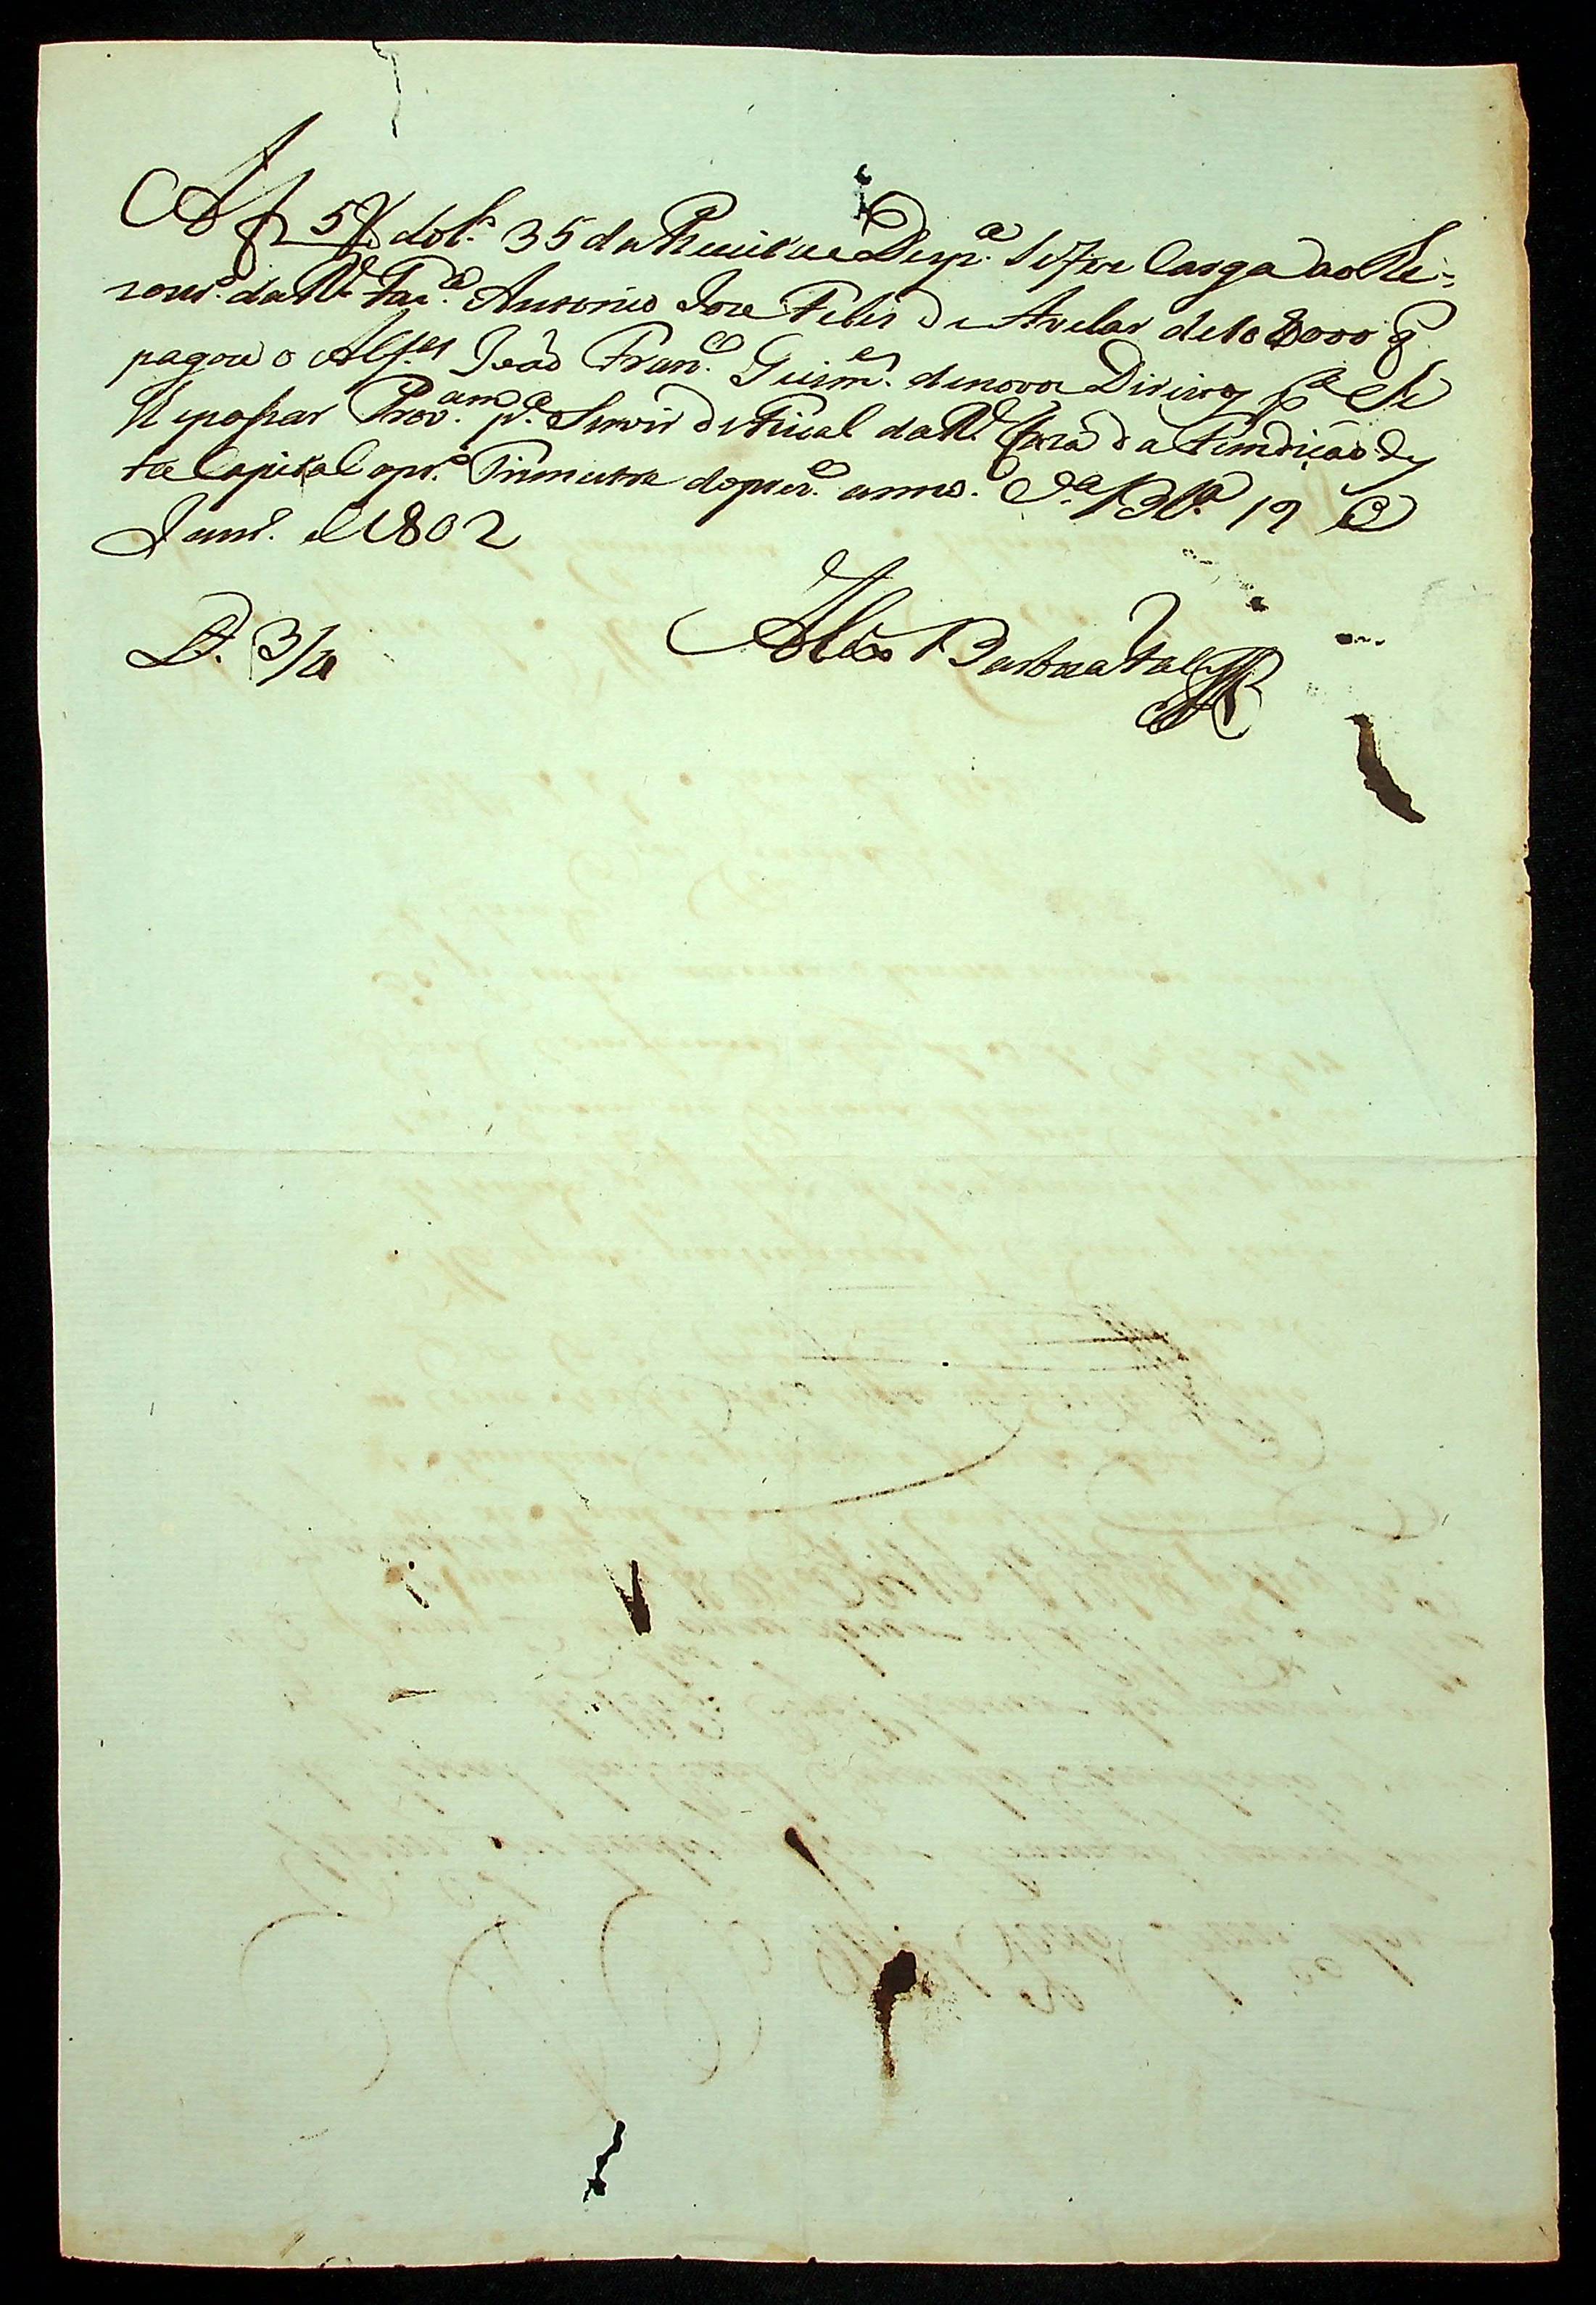 A f 5 V do L.º 35 da Receita e Desp.ª se fez Carga ao The-
zour.º da R.l Faz.ª Antonio Joze Felis de Avelar de 108000 q̃
pagou o Alf.es João Fran.co Guim.es de novos Direitos p.ª se
lhe passar Prov.am p.ª Servir de Fiscal da R.l Caza da Fundição des
ta Capital o pr.º Trimestre do prez.e anno. V.ª B.ª 19 de
Janr.º de 1802
Aleixo Barboza